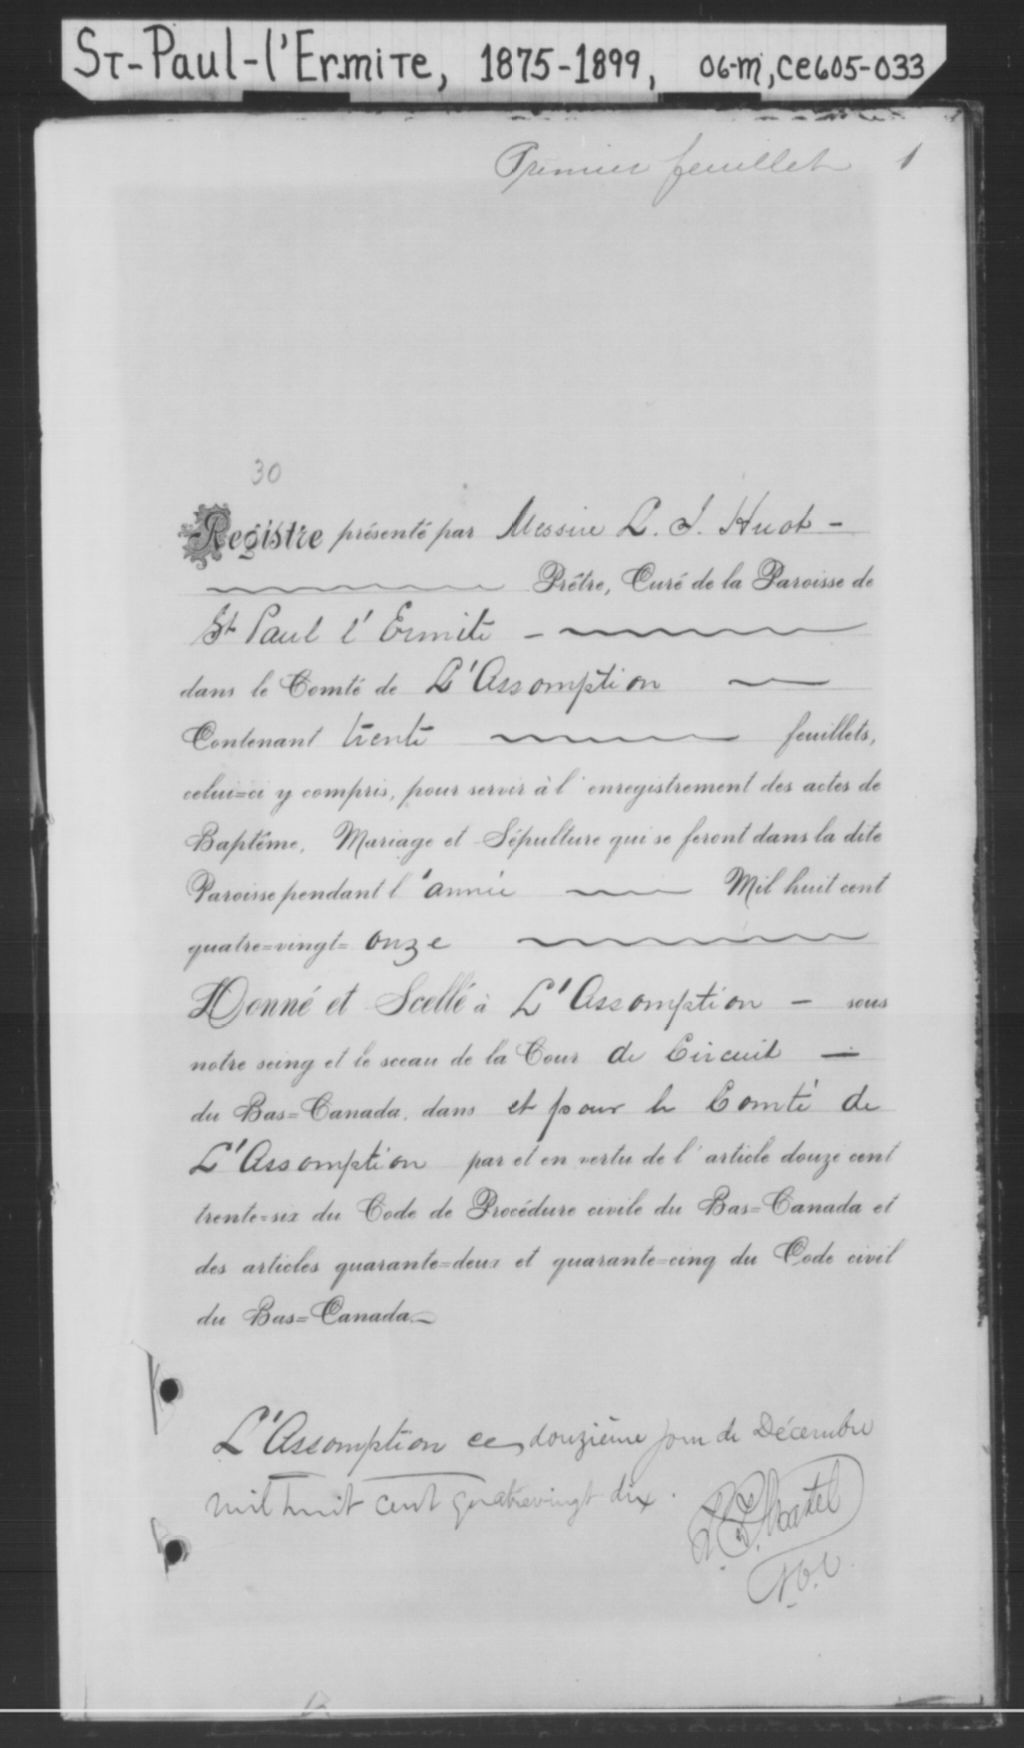 St-Paul-l'Ermite, 1875-1899, 06-m, CE605-033
Premier feuillet 1
30
Registre présenté par Messire L. J. Huot -
Prêtre, Curé de la Paroisse de
St Paul l'Ermite -
dans le Comté de L'Assomption
Contenant trente feuillets,
celui=ci y compris, pour servir à l'enregistrement des actes de
Baptême, Mariage et Sépulture qui se feront dans la dite
Paroisse pendant l'année Mil huit cent
quatre=vingt= onze
Donné et Scellé à L'Assomption - sous
notre seing et le sceau de la Cour de Circuit -
du Bas=Canada, dans et pour le Comté de
L'Assomption par et en vertu de l'article douze cent
trente=six du Code de Procédure civile du Bas=Canada et
des articles quarante=deux et quarante=cinq du Code civil
du Bas=Canada.
L'Assomption ce douzième jour de Décembre
mil huit cent quatrevingt dix.
Martel